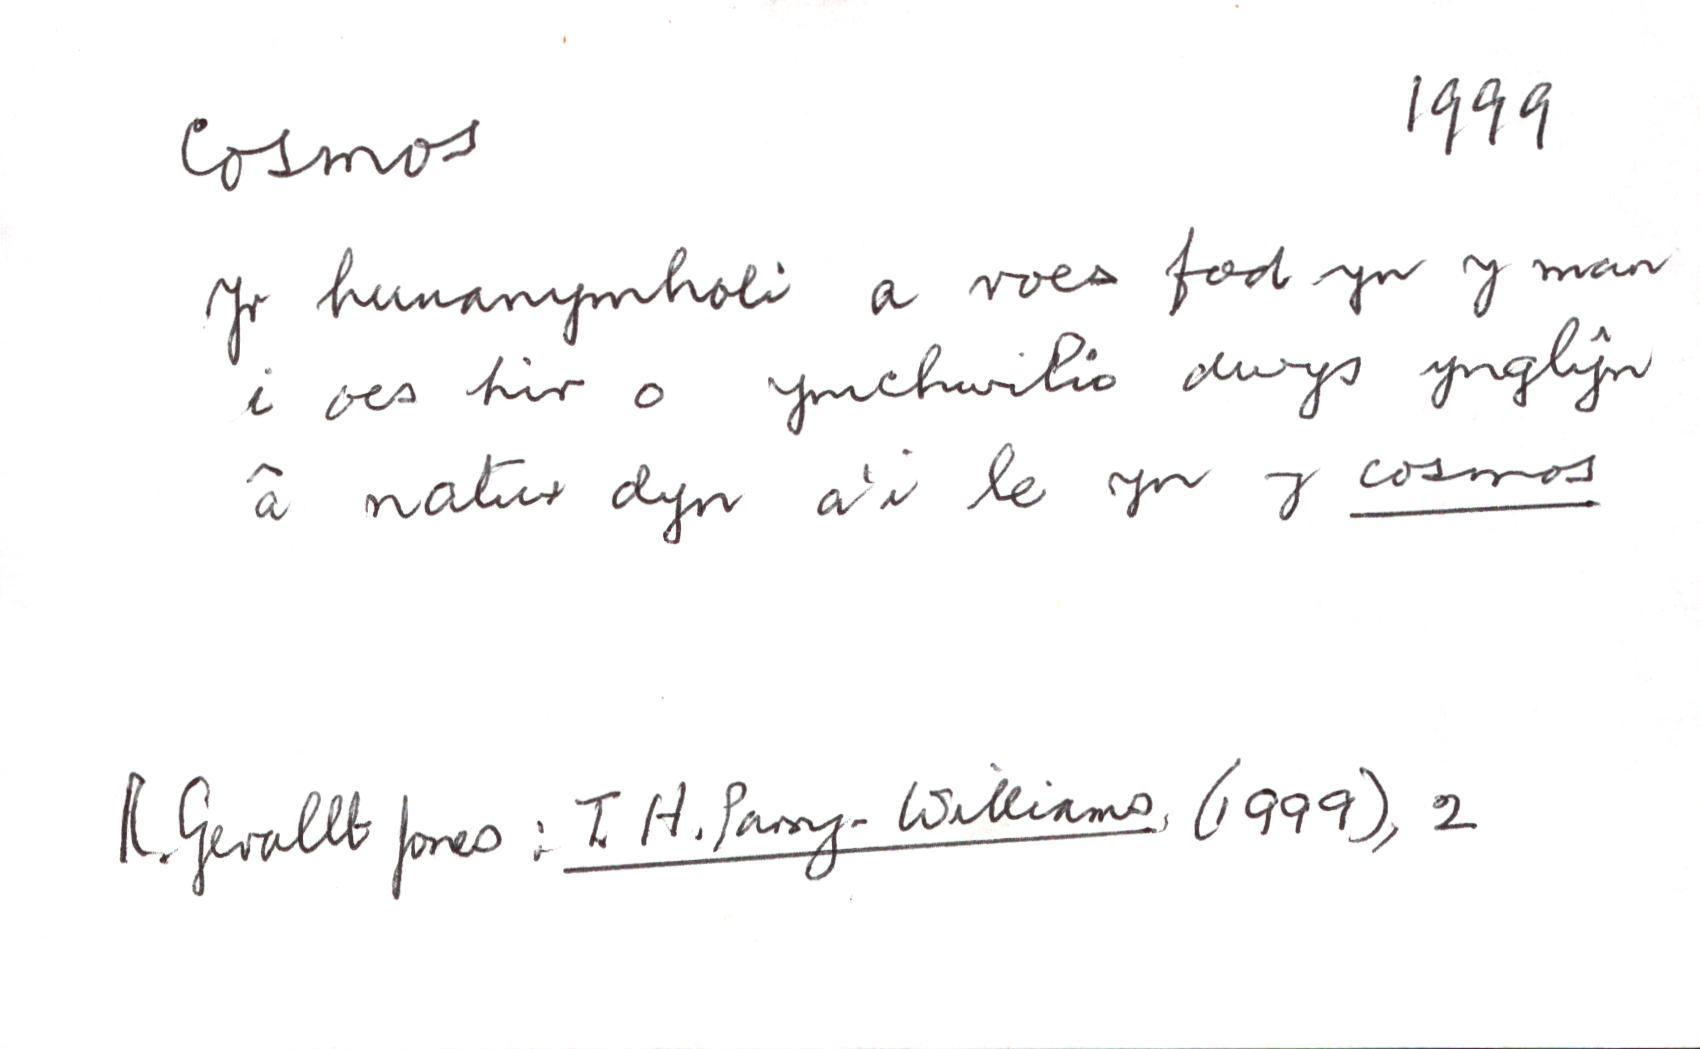 Cosmos
1999
Yr hunanymholi a roes fod yn y man
i oes hir o ymchwilio dwys ynglŷn
â natur dyn a'i le yn y cosmos
R. Gerallt Jones : T. H. Parry-Williams, (1999), 2